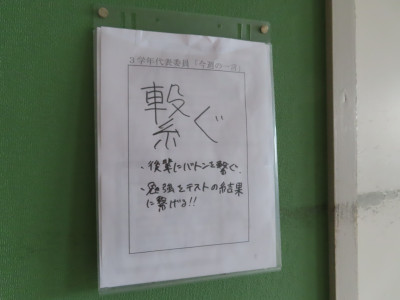 3学年代表委員「今週の一字」
繋ぐ
・後輩にバトンを繋ぐ.
・勉強をテストの結果
に繋げる!!